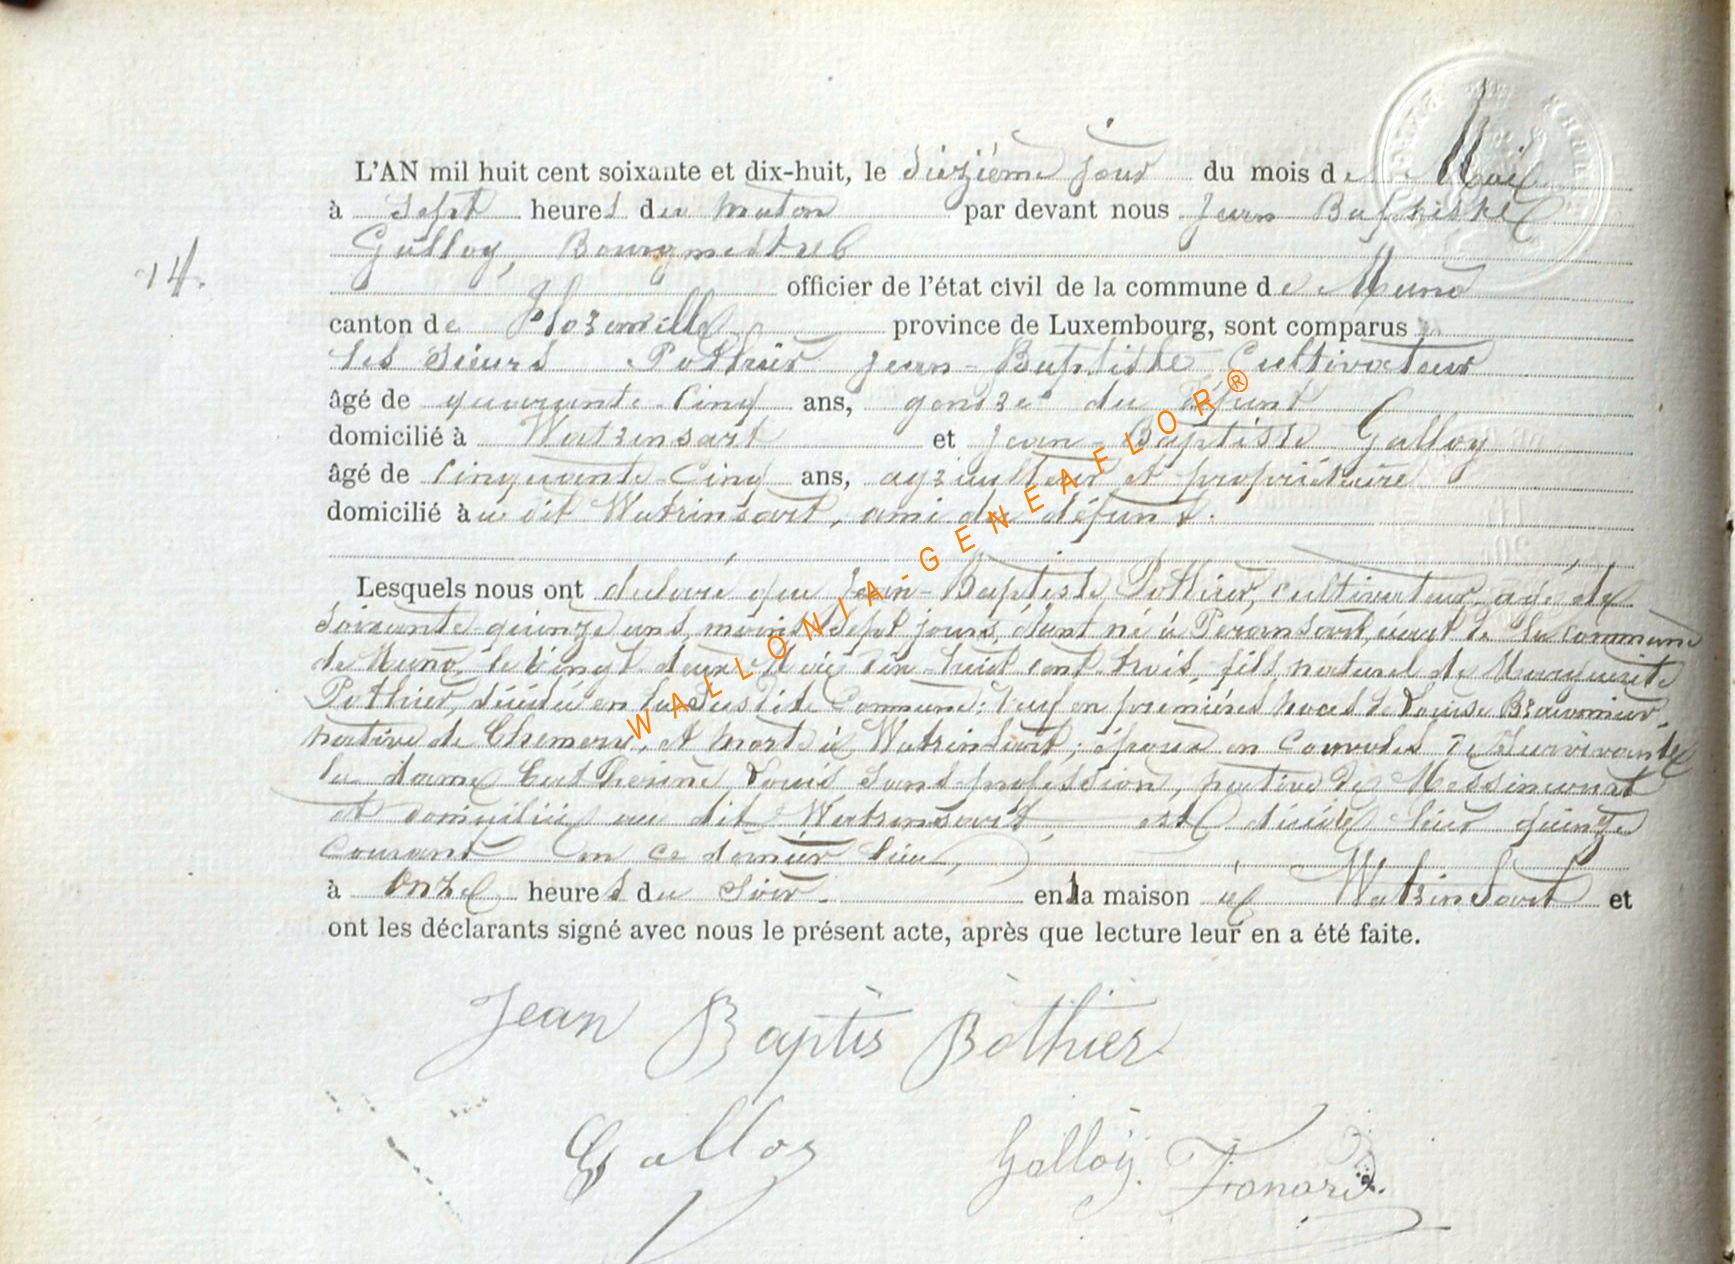 L'AN mil huit cent soixante et dix-huit, le seizième jour du mois de Mai
à sept heures du matin par devant nous Jean Baptiste
14.
Galloy, Bourgmestre
officier de l'état civil de la commune de Muno
canton de Florenville province de Luxembourg, sont comparus
les sieurs Pothier Jean-Baptiste Cultivateur
âgé de quarante-cinq ans, gendre du défunt
domicilié à Watrinsart et Jean-Baptiste Galloy
âgé de cinquante-cinq ans, agriculteur et propriétaire
domicilié au dit Watrinsart, ami du défunt.
Lesquels nous ont déclaré que Jean-Baptiste Pothier, cultivateur, agé de
soixante-quinze ans, moins sept jours, étant né à de la commune
de Muno, le vingt-deux Mai huit cent trois, fils naturel de Marguerite
Pothier, décédée en la susdite Commune; veuf en premières noces de Louise
native de Chemery, et morte à Watrinsart; époux en de Survivante
la dame Catherine Louis sans profession, native de Messincourt
et domiciliée au dit Watrinsart, est décédé quinze
courant en ce dernier lieu,
à onze heures du soir. en la maison à Watrinsart et
ont les déclarants signé avec nous le présent acte, après que lecture leur en a été faite.
Jean Baptis Bothier
Galloy Galloy.
WALLONIA-GENEAFLOR®